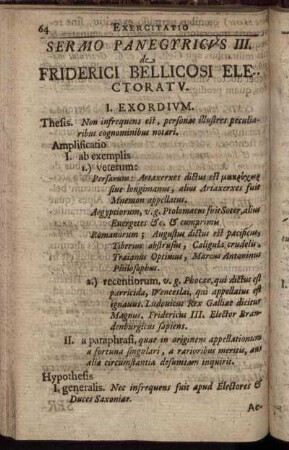 64 EXERCITATIO
SERMO PANEGYRICVS III.
de
FRIDERICI BELLICOSI ELE-
CTORATV.
I. EXORDIVM.
Thesis. Non infrequens est, personas illustres peculia-
ribus cognominibus notari.
Amplificatio
I. ab exemplis
1.) veterum:
Persarum: Artaxerxes dictus est μακρόχειρ
siue longimanus, alius Artaxerxes fuit
Mnemon appellatus.
Aegyptiorum, v. g. Ptolomaeus fuit Soter, alius
Euergetes &c. & cumprimis
Romanorum; Augustus dictus est pacificus,
Tiberius abstrusus, Caligula crudelis,
Traianus Optimus, Marcus Antoninus
Philosophus.
2.) recentiorum, v. g. Phocae, qui dictus est
parricida, Wenceslai, qui appellatus est
ignauus. Ludouicus Rex Galliae dicitur
Magnus. Fridericus III. Elector Bran-
denburgicus sapiens.
II. a paraphrasi, quae in originem appellationum
a fortuna singulari, a rarioribus meritis, aut
alia circumstantia desumtam inquirit.
Hypothesis
I. generalis. Nec infrequens fuit apud Electores &
Duces Saxoniae.
Ae-